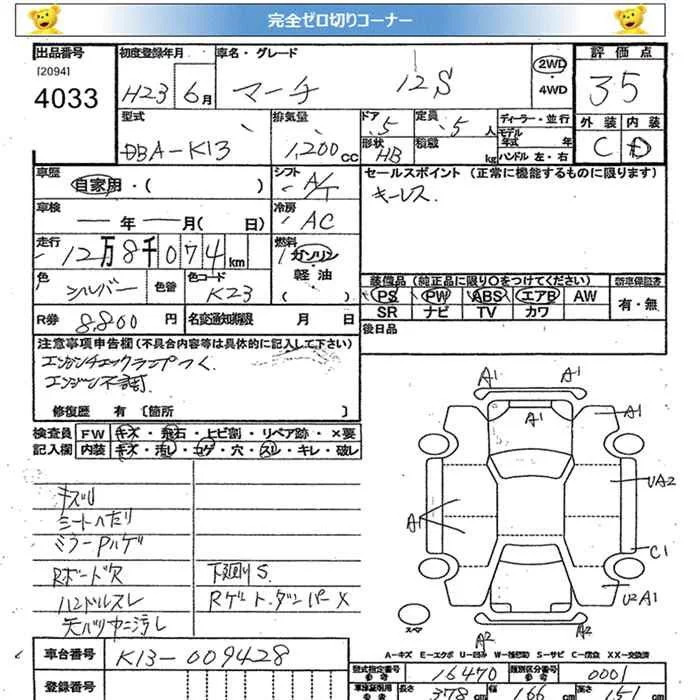 完全ゼロ切りコーナー
出品番号 初度登録年月 車名・グレード 評価点
[2094]
4033
H23 6月 マーチ 12S 2WD・4WD 35
外装 内装
C D
型式 排気量 ドア 定員 ディーラー・並行
DBA-K13 1,200cc 5 5人 モデル年式 年
形状 HB 積載 kg ハンドル 左・右
車歴 シフト セールスポイント(正常に機能するものに限ります)
自家用・( ) A/T キーレス
車検 冷房
年 月( 日) AC
走行 12万8千074km 燃料 ガソリン 軽油 ( )
色 シルバー 色替 色コード K23
装備品(純正品に限り○をつけてください) 新車保証書
PS PW ABS エアB AW 有・無
SR ナビ TV カワ
R券 8,800円 名変通知期限 月 日
後日品
注意事項申告欄(不具合内容等は具体的に記入して下さい)
エンジンチェックランプつく
エンジン不調
修復歴 有 [箇所 ]
検査員 FW キズ・飛石・ヒビ割・リペア跡・×要
記入欄 内装 キズ・汚レ・コゲ・穴・スレ・キレ・破レ
キズU
シートヘたり
ミラーPハゲ
Rボード穴 下廻りS
ハンドルスレ Rゲートダンパー×
天バリ中ニ汚し
A1 A1
A1 A1
UA2
A1
C1
U2A1
スペア
A2 A2
A-キズ E-エクボ U-凹み W-補修跡 S-サビ C-腐食 XX-交換済
車台番号 K13-009428
登録番号
型式指定番号 参考 16470 類別区分番号 参考 0001
車検証明用 参考 長さ 378cm 幅 166cm 高さ 151cm